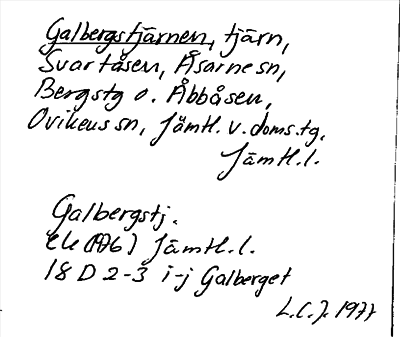 Galbergstjärnen, tjärn,
Svartåsen, Åsarne sn,
Bergstg o. Åbbåsen,
Ovikens sn, Jämtl. v. doms.tg.
Jämtl.l.
Galbergstj.
Jämtl.l.
18 D 2-3 i-j Galberget
L.C.J. 1977